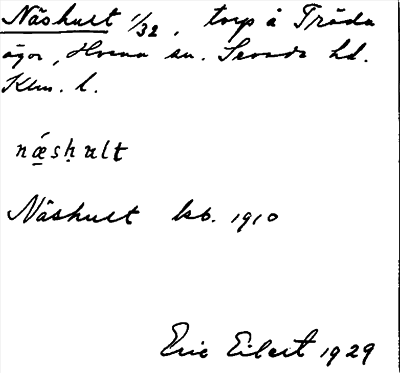 Näshult 1/32, torp å Tröda
ägor, Hvena sn. Sevede hd.
Klm. l.
nǽ̣sḥult
Näshult kb. 1910
Eric Eilert 1929